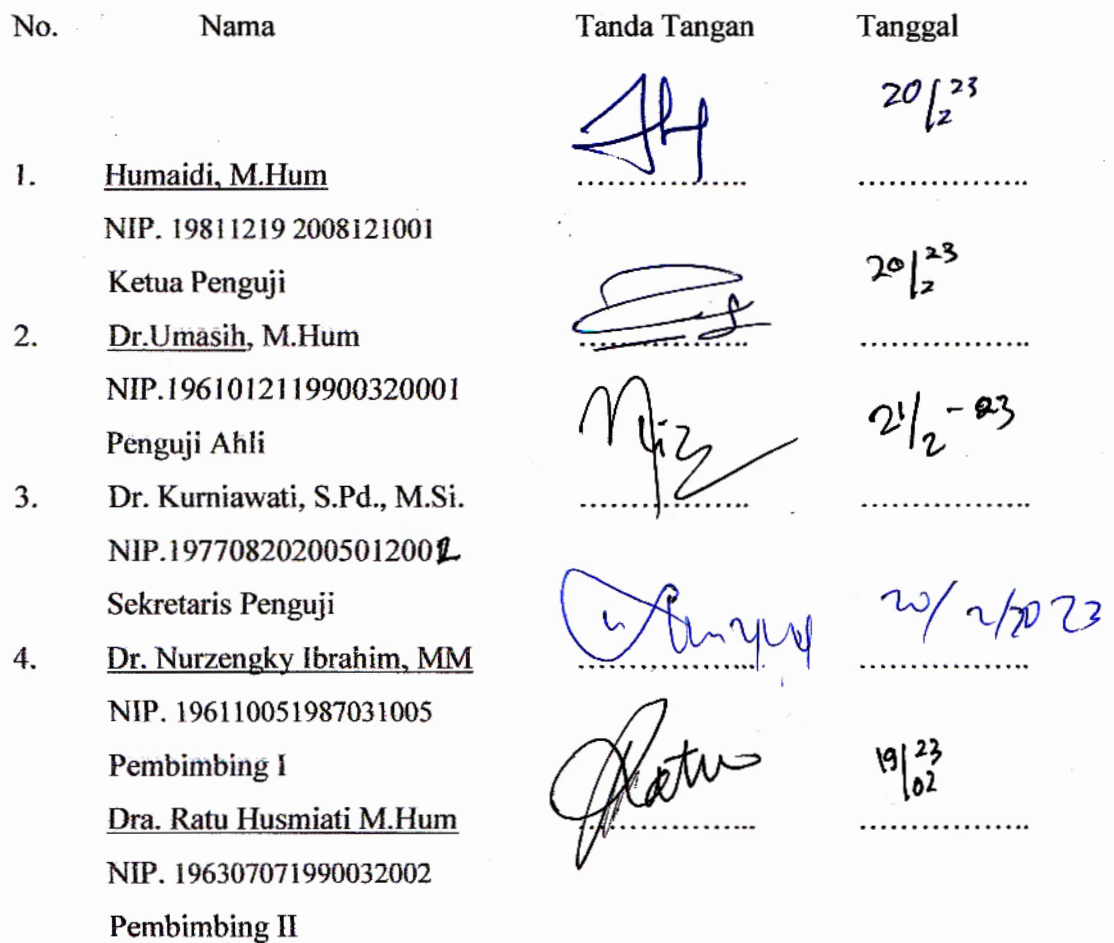 No. Nama Tanda Tangan Tanggal
20/2 23
1. Humaidi, M.Hum ................. .................
NIP. 19811219 2008121001
Ketua Penguji
20/2 23
2. Dr.Umasih, M.Hum ................. .................
NIP.19610121199003200​01
Penguji Ahli
21/2 - 23
3. Dr. Kurniawati, S.Pd., M.Si. ................. .................
NIP.197708202005012002
Sekretaris Penguji
20/2/2023
4. Dr. Nurzengky Ibrahim, MM ................. .................
NIP. 196110051987031005
Pembimbing I
Ratu 19/02 23
Dra. Ratu Husmiati M.Hum ................. .................
NIP. 196307071990032002
Pembimbing II